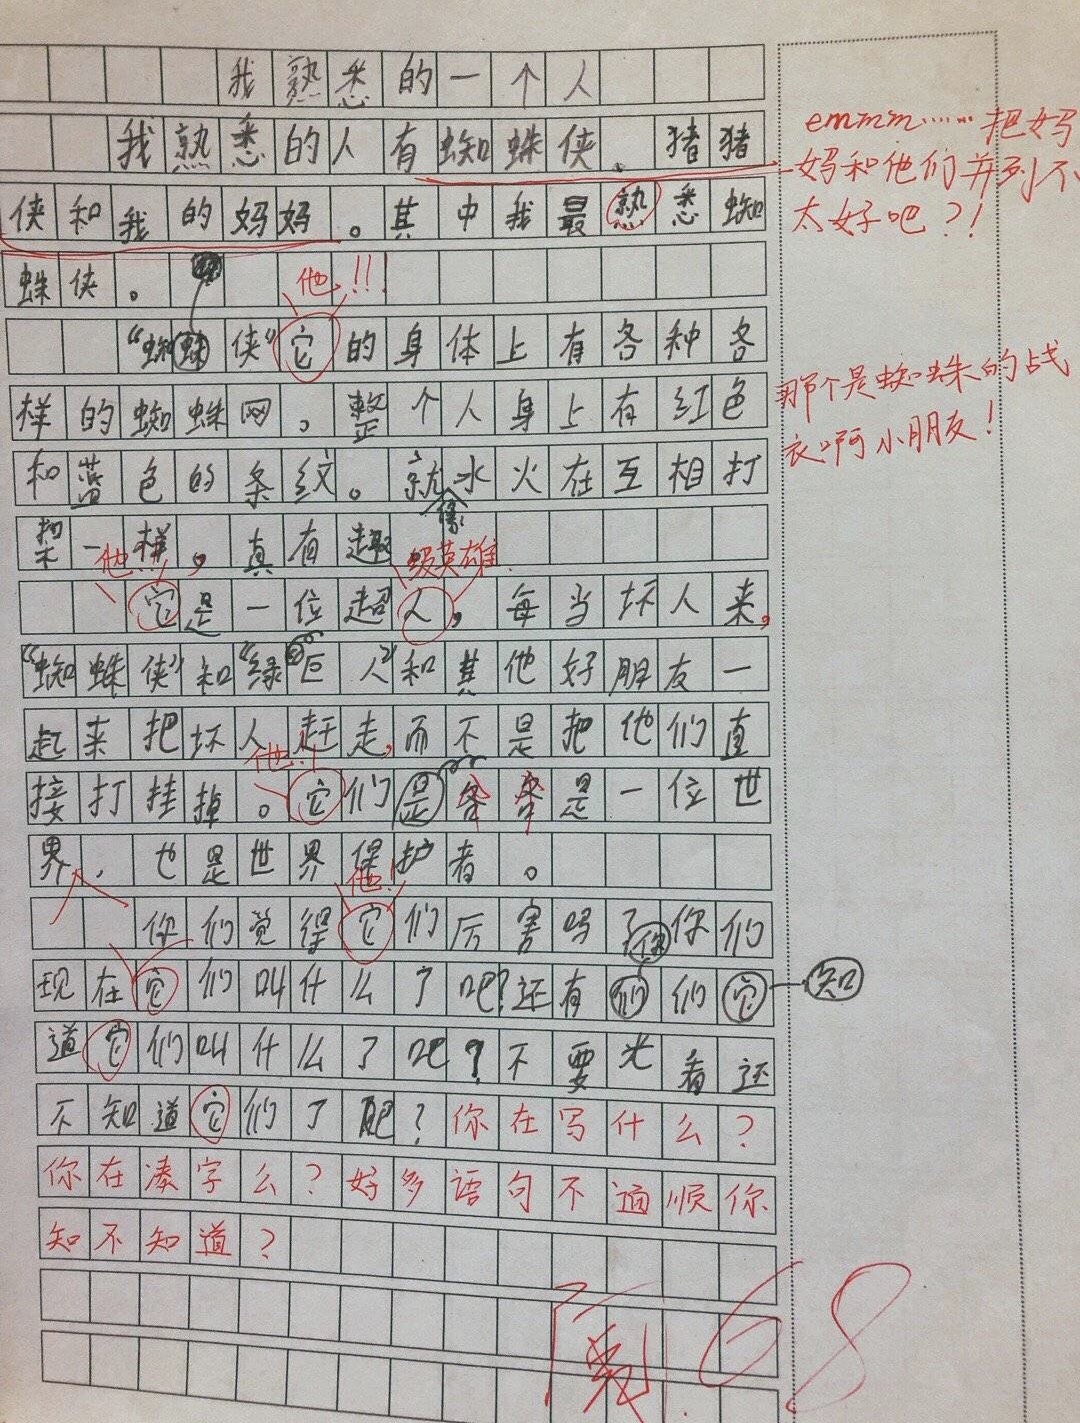 我熟悉的一个人
我熟悉的人有蜘蛛侠、猪猪
侠和我的妈妈。其中我最熟悉蜘
蛛侠。
他!!!
“蜘蛛侠”它的身体上有各种各
样的蜘蛛网。整个人身上有红色
和蓝色的条纹。就水火在互相打
像
架一样,真有趣
他 级英雄
它是一位超人,每当坏人来,
“蜘蛛侠”和“绿巨人”和其他好朋友一
起来把坏人赶走,而不是把他们直
他!
接打挂掉。它们是各各是一位世
界人,也是世界保护者。
他!
你们觉得它们厉害吗?你你们
现在它们叫什么了吧?还有们们它知
道它们叫什么了吧?不要光看还
不知道它们了吧?你在写什么?
你在凑字么?好多语句不通顺你
知不知道?
68
emmm……把妈
妈和他们并列不
太好吧?!
那个是蜘蛛的战
衣啊小朋友!